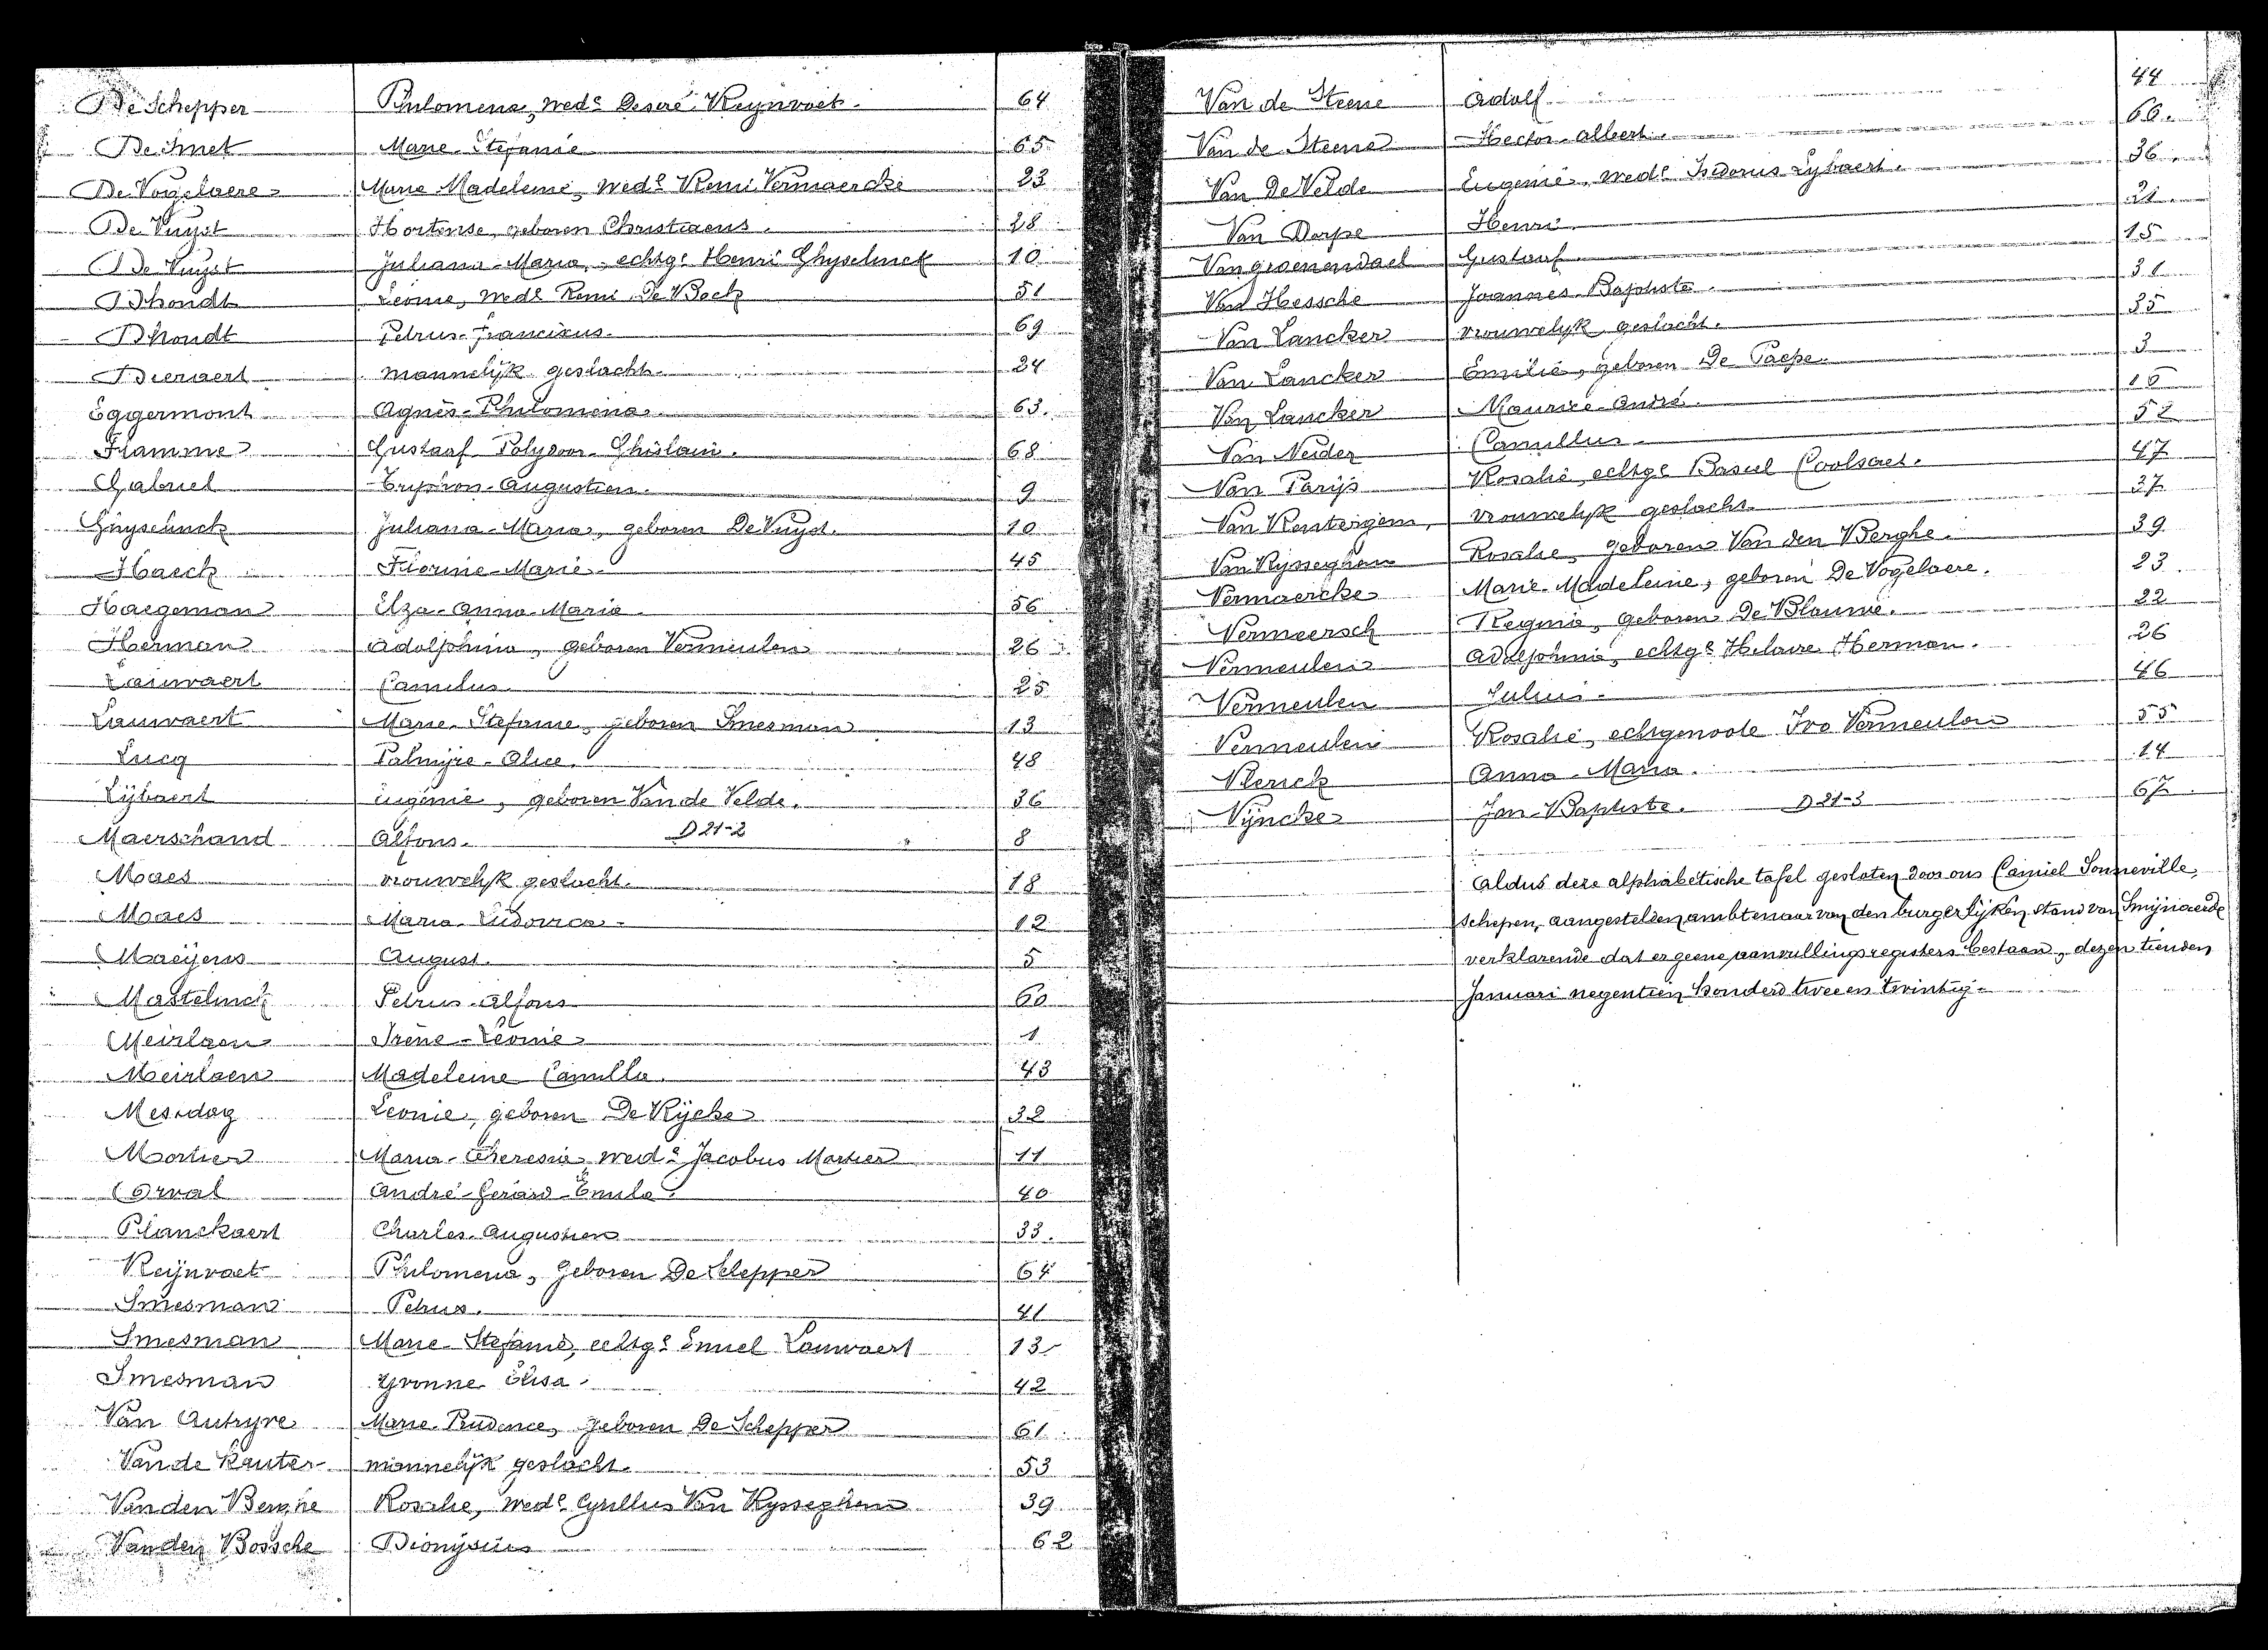 De Schepper Philomena, wede Desiré Reynvoet. 64
De Smet Marie-Stefanie 65
De Vogelaere Marie-Madeleine, wede Remi Vermaercke 23
De Vuyst Hortense, geboren Christiaens. 28
De Vuyst Juliana-Maria, echtge Henri Ghyselinck 10
Dhondt Leonie, wede Remi De Bock 51
Dhondt Petrus-Franciscus 69
Dieraert mannelijk geslacht. 24
Eggermont Agnès-Philomena. 63.
Flamme Gustaaf Polydoor Ghislain. 68
Gabriel Tryphon-Augustien. 9
Ghyselinck Juliana-Maria, geboren De Vuyst. 10
Haeck Florine-Marie 45
Haegeman Elza-Anna-Maria 56
Herman Adolphina, geboren Vermeulen 26
Lauwaert Camilus 25
Lauwaert Marie-Stefanie, geboren Smesman 13
Lucq Palmyre-Alice. 48
Lybaert Eugénie, geboren Van de Velde. 36
Maerschand Alfons. D 21-2 8
Maes vrouwelijk geslacht. 18
Maes Maria-Ludovica 12
Maeyens August. 5
Mastelinck Petrus-Alfons 60
Meirlaen Irène-Léonie 1
Meirlaen Madeleine Camilla. 43
Mesdag Leonie, geboren De Rycke 32
Mortier Maria-Theresia, wede Jacobus Mortier 11
Orval André-Gérard-Emile. 40
Planckaert Charles-Augustien 33.
Reynvoet Philomena, geboren De Schepper 64
Smesman Petrus. 41
Smesman Marie-Stefanie, echtge Emiel Lauwaert 13
Smesman Yvonne Elisa. 42
Van Autryve Marie-Prudence, geboren De Schepper 61
Van de Kauter mannelijk geslacht. 53
Van den Berghe Rosalie, wede Cyrillus Van Rysseghem 39
Van den Bossche Dionysius 62
Van de Steene Adolf 44
Van de Steene Hector-Albert. 66.
Van De Velde Eugenie, wede Isidorus Lybaert. 36
Van Dorpe Henri 21
Van groenendael Gustaaf 15
Van Hessche Joannes-Baptiste. 31
Van Lancker vrouwelijk geslacht. 35
Van Lancker Emilie, geboren De Paepe. 3
Van Lancker Maurice-André. 16
Van Neider Camillus 52
Van Parijs Rosalie, echtge Basiel Coolsaet. 47
Van Renterghem, vrouwelijk geslacht. 37
Van Rysseghem Rosalie, geboren Van den Berghe. 39
Vermaercke Marie-Madeleine, geboren De Vogelaere. 23
Vermeersch Regina, geboren De Blaume. 22
Vermeulen Adolphina, echtge Hilaire Herman. 26
Vermeulen Julius 46
Vermeulen Rosalie, echtgenoote Ivo Vermeulen 55
Vlerick Anna-Maria. 14
Vyncke Jan-Baptiste. D 21-3 67
Aldus deze alphabetische tafel gesloten door ons Camiel Sonneville,
schepen, aangestelden ambtenaar van den burgerlijken stand van Smijnaerde
verklarende dat er geene aanvullingsregisters bestaan, dezen tienden
Januari negentien honderd twee en twintig.